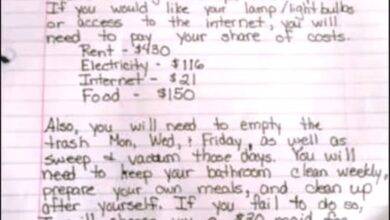 If you would like your lamp/lightbulbs
or access to the internet, you will
need to pay your share of costs.
Rent - $430
Electricity - $116
Internet - $21
Food - $150
Also, you will need to empty the
trash Mon, Wed, & Friday, as well as
sweep & vacuum those days. You will
need to keep your bathroom clean weekly,
prepare your own meals, and clean up
after yourself. If you fail to do so,